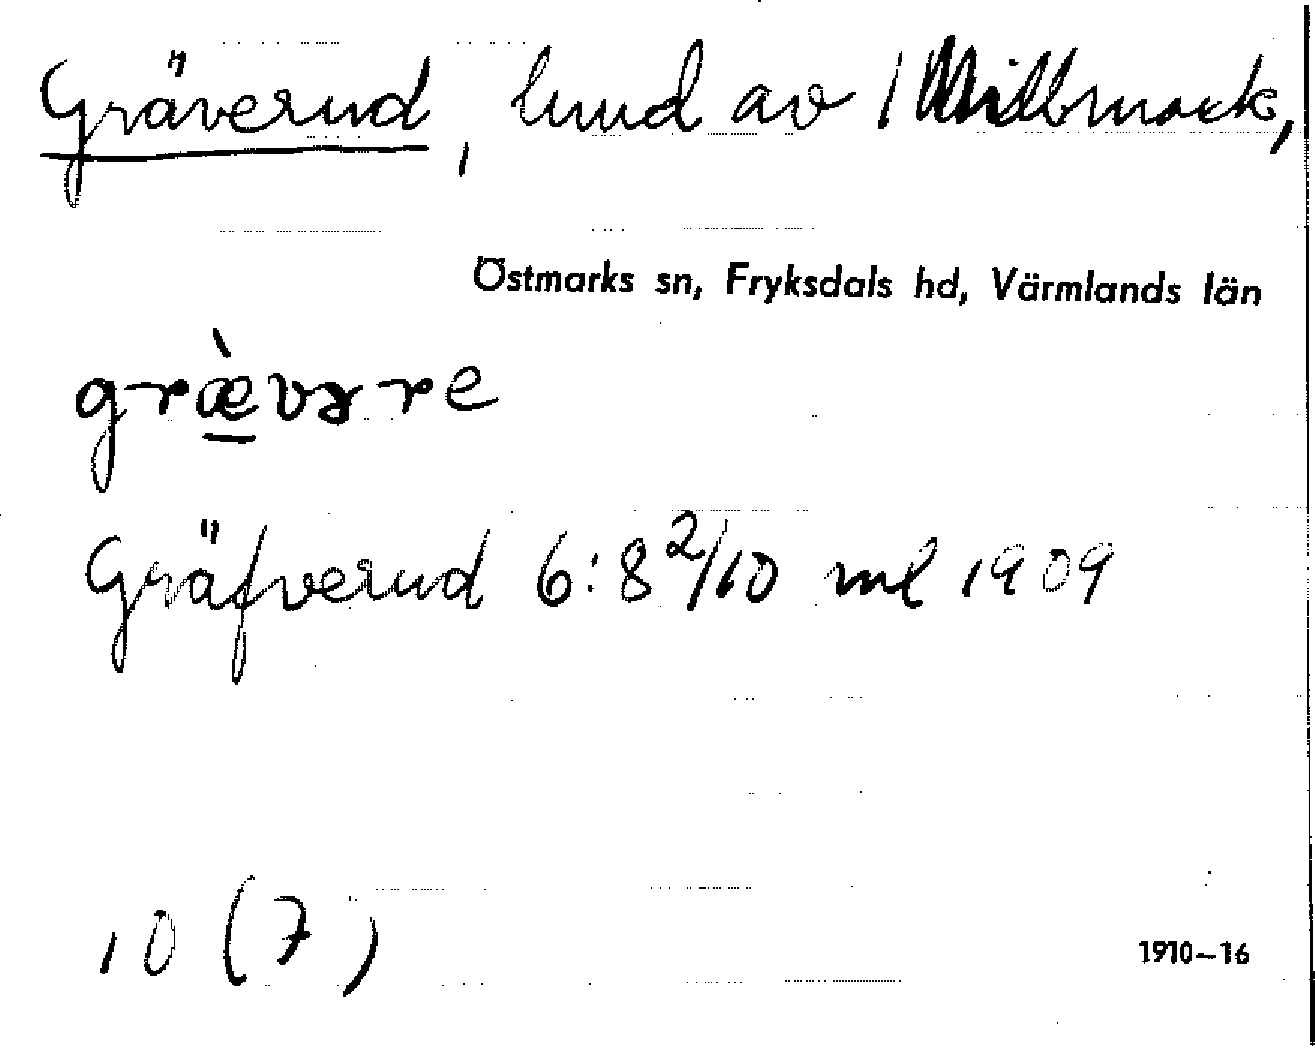 Gräverud, lund av 1 Millbmark,
Östmarks sn, Fryksdals hd, Värmlands län
græ̀vərre
Gräfverud 6:8 2/10 ml 1909
10 (7)
1910–16